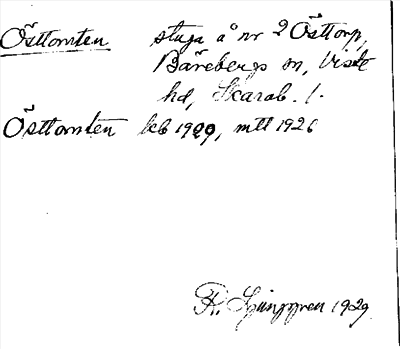 Östtomten stuga å nr 2 Östtorp,
Bärebergs sn, Viste
hd, Skarab. l.
Östtomten kb 1909, mtl 1926
K. Ljunggren 1929